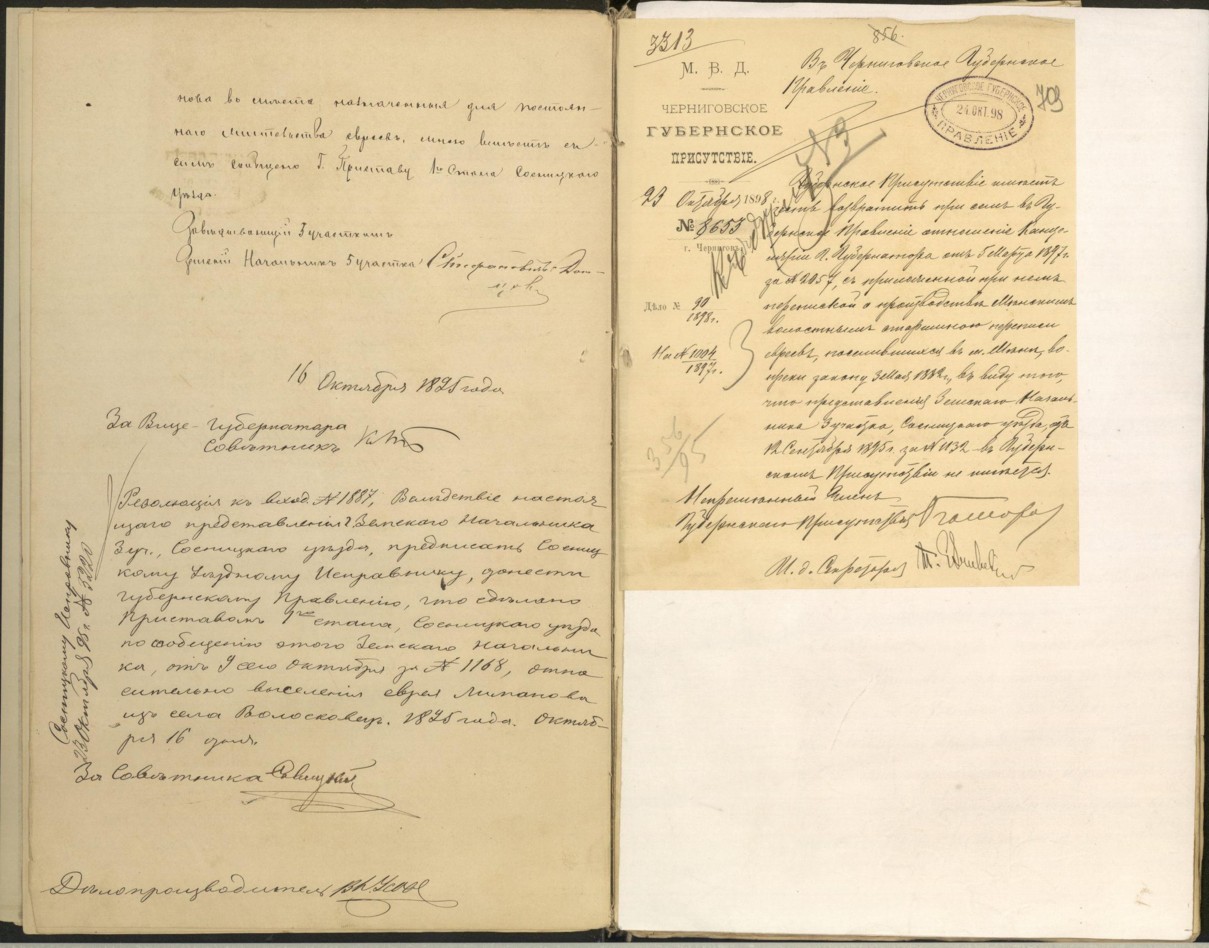 нова во
назначенныя для постоян-
наго жительства евреевъ, мною вместе съ
симъ сообщено Г. Приставу 1го Стана Сосницкаго
уезда.
Завѣдывающій 3 участкомъ
Земскій Начальникъ 5 участка
16 Октября 1895 года
За Вице-Губернатора
Совѣтникъ
Сосницкому Исправнику
23 Октября 95 г. № 5220
Резолюція къ вход. № 1887, Вслѣдствіе настоя
щаго представленія Г. Земскаго Начальника
3 уч., Сосницкаго уѣзда, предписать Сосниц
кому Уѣздному Исправнику, донести
Губернскому Правленію, что сдѣлано
Приставомъ 1го стана, Сосницкаго уѣзда
по сообщенію этого Земскаго Начальни
ка, отъ 9 сего Октября за № 1168, отно
сительно выселенія еврея Липанова
изъ села Волосковец. 1895 года. Октяб-
ря 16 дня.
За Совѣтника
Дѣлопроизводитель
3313
856.
М. В. Д.
ЧЕРНИГОВСКОЕ
ГУБЕРНСКОЕ
ПРИСУТСТВІЕ.
23 Октября 1898 г.
№ 8655
г. Черниговъ.
Дѣло № 90
1898 г.
На № 1004
1897 г.
356
95
Въ Черниговское Губернское
Правленіе.
ЧЕРНИГОВСКОЕ ГУБЕРНСКОЕ
24.ОКТ.98
ПРАВЛЕНІЕ
703
№3
Губернское Присутствіе имѣетъ
честь возвратить при семъ въ Гу-
бернское Правленіе отношеніе Канце-
ляріи Г. Губернатора отъ 5 Марта 1897 г.
за № 2057, съ приложенной при немъ
перепиской о производствѣ Менскимъ
волостнымъ старшиною переписи
евреевъ, поселившихся въ м. Менѣ, во-
преки закону 3 Мая 1882 г., въ виду того,
что представленія Земскаго Началь-
ника 3 участка, Сосницкаго уѣзда, отъ
12 Сентября 1895 г. за № 1132 въ Губерн-
скомъ Присутствіи не имѣется.
Непремѣнный Членъ
Губернскаго Присутствія
И. д. Секретаря